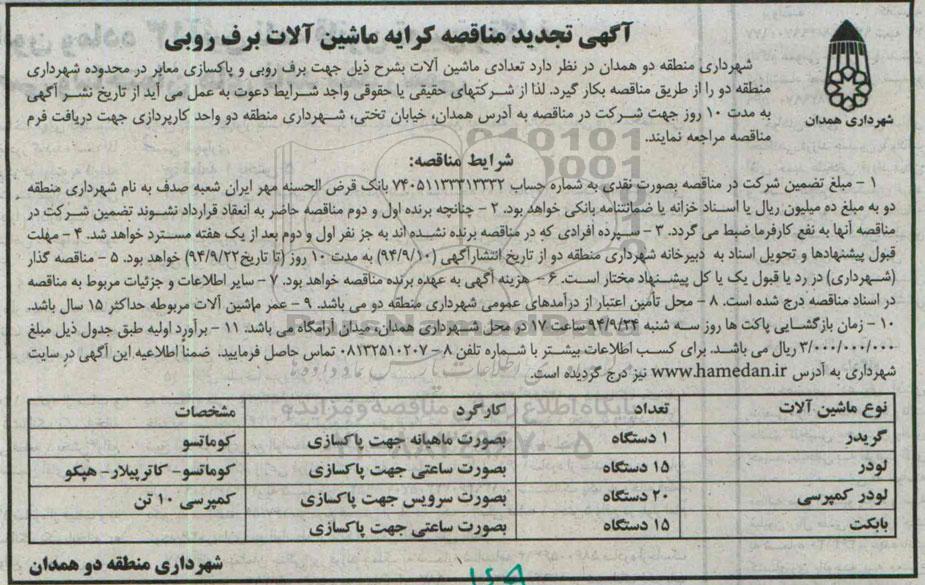 آگهی تجدید مناقصه کرایه ماشین آلات برف روبی
شهرداری همدان
شهرداری منطقه دو همدان در نظر دارد تعدادی ماشین آلات بشرح ذیل جهت برف روبی و پاکسازی معابر در محدوده شهرداری
منطقه دو را از طریق مناقصه بکار گیرد. لذا از شرکتهای حقیقی یا حقوقی واجد شرایط دعوت به عمل می آید از تاریخ نشر آگهی
به مدت ۱۰ روز جهت شرکت در مناقصه به آدرس همدان، خیابان تختی، شهرداری منطقه دو واحد کارپردازی جهت دریافت فرم
مناقصه مراجعه نمایند.
شرایط مناقصه:
۱ - مبلغ تضمین شرکت در مناقصه بصورت نقدی به شماره حساب ۷۴۰۵۱۱۳۳۳۱۳۳۳۲ بانک قرض الحسنه مهر ایران شعبه صدف به نام شهرداری منطقه
دو به مبلغ ده میلیون ریال یا اسناد خزانه یا ضمانتنامه بانکی خواهد بود. ۲ - چنانچه برنده اول و دوم مناقصه حاضر به انعقاد قرارداد نشوند تضمین شرکت در
مناقصه آنها به نفع کارفرما ضبط می گردد. ۳ - سپرده افرادی که در مناقصه برنده نشده اند به جز نفر اول و دوم بعد از یک هفته مسترد خواهد شد. ۴ - مهلت
قبول پیشنهادها و تحویل اسناد به دبیرخانه شهرداری منطقه دو از تاریخ انتشارآگهی (۹۴/۹/۱۰) به مدت ۱۰ روز (تا تاریخ ۹۴/۹/۲۲) خواهد بود. ۵ - مناقصه گذار
(شهرداری) در رد یا قبول یک یا کل پیشنهاد مختار است. ۶ - هزینه آگهی به عهده برنده مناقصه خواهد بود. ۷ - سایر اطلاعات و جزئیات مربوط به مناقصه
در اسناد مناقصه درج شده است. ۸ - محل تأمین اعتبار از درآمدهای عمومی شهرداری منطقه دو می باشد. ۹ - عمر ماشین آلات مربوطه حداکثر ۱۵ سال باشد.
۱۰ - زمان بازگشایی پاکت ها روز سه شنبه ۹۴/۹/۲۴ ساعت ۱۷ در محل شهرداری همدان، میدان آرامگاه می باشد. ۱۱ - برآورد اولیه طبق جدول ذیل مبلغ
۳/۰۰۰/۰۰۰/۰۰۰ ریال می باشد. برای کسب اطلاعات بیشتر با شماره تلفن ۸ - ۰۸۱۳۲۵۱۰۲۰۷ تماس حاصل فرمایید. ضمنا اطلاعیه این آگهی در سایت
شهرداری به آدرس www.hamedan.ir نیز درج گردیده است.
نوع ماشین آلات تعداد کارکرد مشخصات
گریدر ۱ دستگاه بصورت ماهیانه جهت پاکسازی کوماتسو
لودر ۱۵ دستگاه بصورت ساعتی جهت پاکسازی کوماتسو- کاترپیلار- هپکو
لودر کمپرسی ۲۰ دستگاه بصورت سرویس جهت پاکسازی کمپرسی ۱۰ تن
بابکت ۱۵ دستگاه بصورت ساعتی جهت پاکسازی
شهرداری منطقه دو همدان